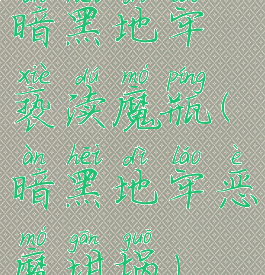 暗黑地牢
xiè dú mó píng
亵渎魔瓶(
àn hēi dì láo è
暗黑地牢恶
mó gān guō
魔坩埚)